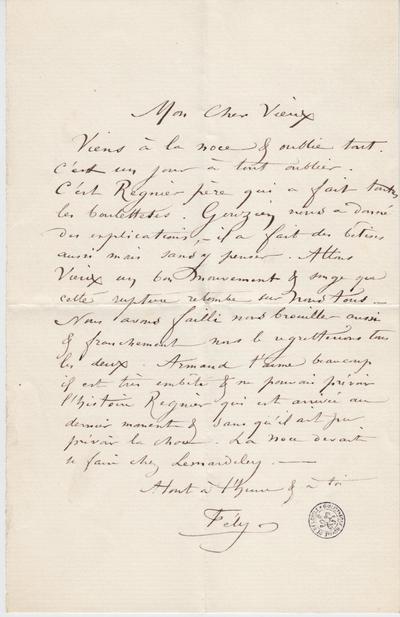 Mon Cher Vieux
Viens à la noce & oublie tout.
c'est un jour à tout oublier.
C'est Regnier père qui a fait toutes
les boulettes. Gouzien nous a donné
des explications, - il a fait des bêtises
aussi mais sans y penser. Allons
Vieux un bon mouvement & songe que
cette rupture retombe sur nous tous...
Nous avons failli nous brouiller aussi
& franchement nous le regretterions tous
les deux. Armand t'aime beaucoup
il est très embêté & ne pouvait prévoir
l'histoire Regnier qui est arrivée au
dernier moment & sans qu'il ait pu
prévoir la chose. La noce devait
se faire chez Lemardeley. —
A tout à l'heure & à toi
Fély